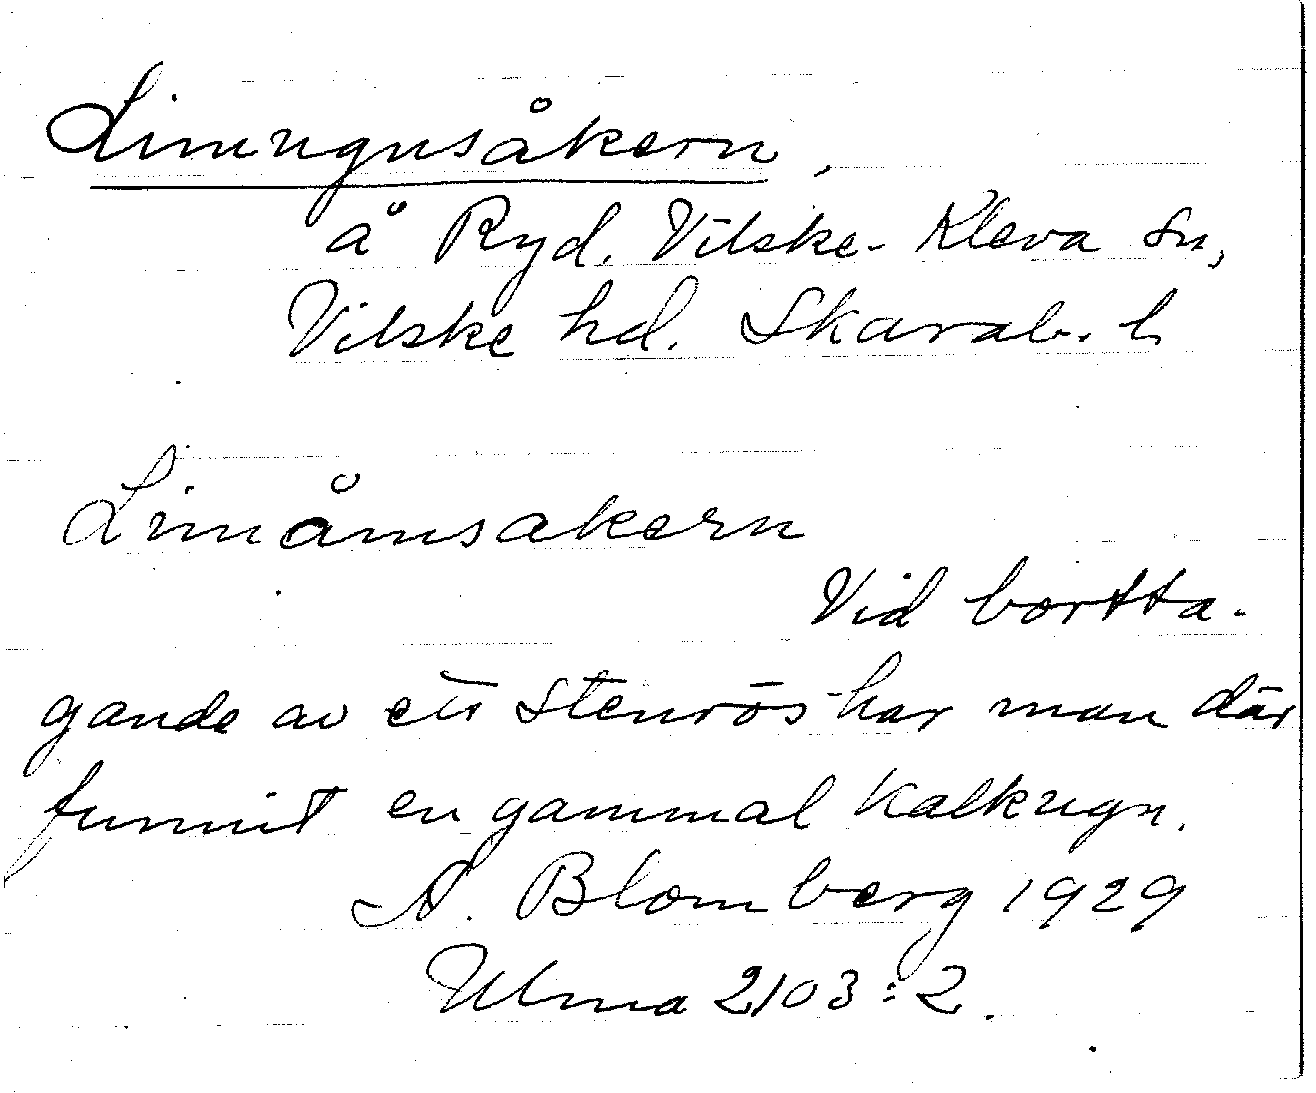 Limugnsåkern,
å Ryd. Vilske-Kleva sn,
Vilske hd. Skarab. l
Limåmsakern
Vid bortta-
gande av ett stenrös har man där
funnit en gammal kalkugn.
A. Blomberg 1929
Ulma 2103:2.